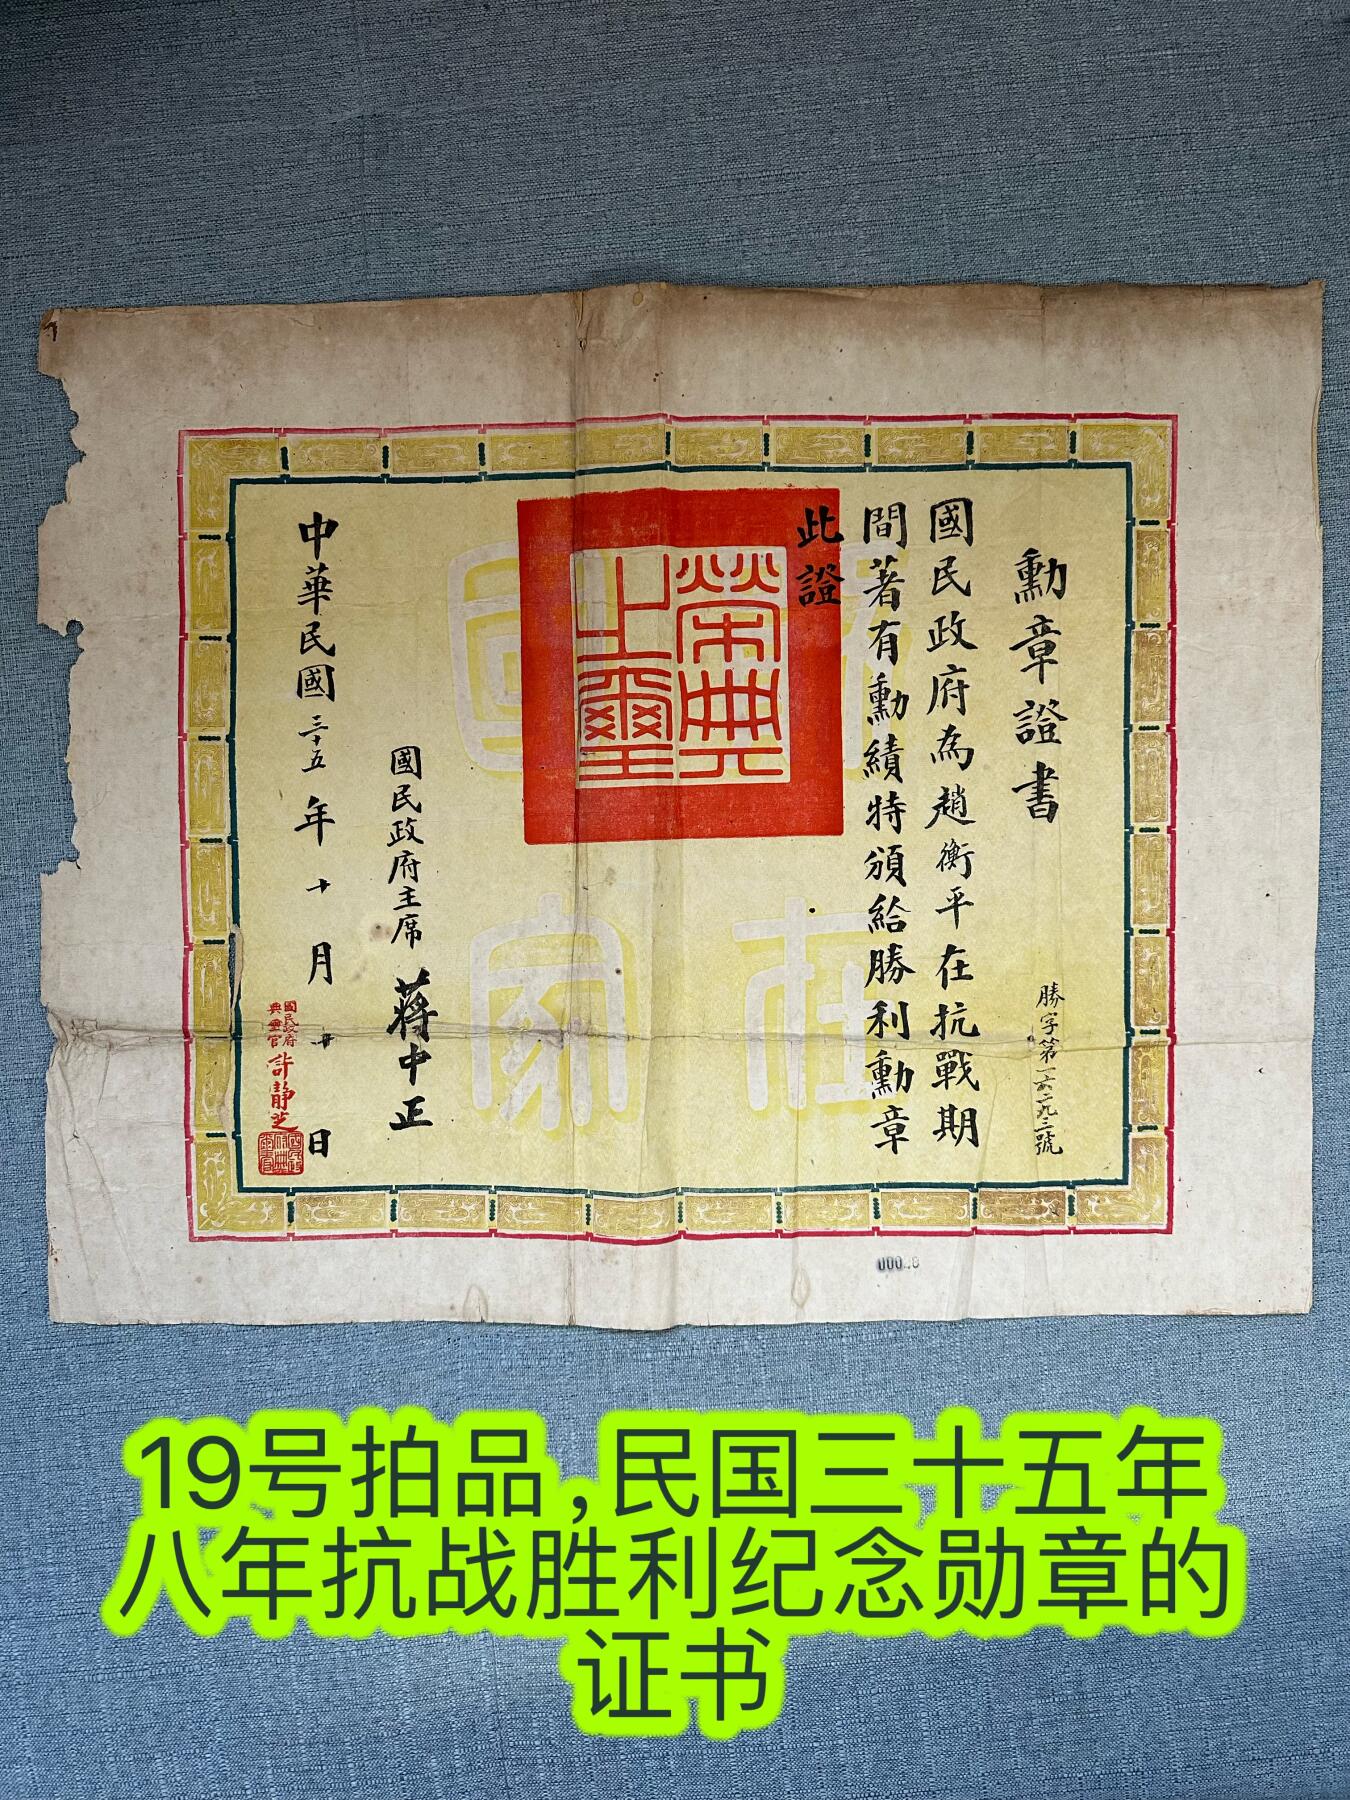 勳章證書
勝字第一六二九三號
國民政府為趙衡平在抗戰期
間著有勳績特頒給勝利勳章
此證
榮典
之璽
國民政府主席 蔣中正
中華民國三十五年十月 日
國民政府
典璽官 許靜芝
19号拍品,民国三十五年
八年抗战胜利纪念勋章的
证书